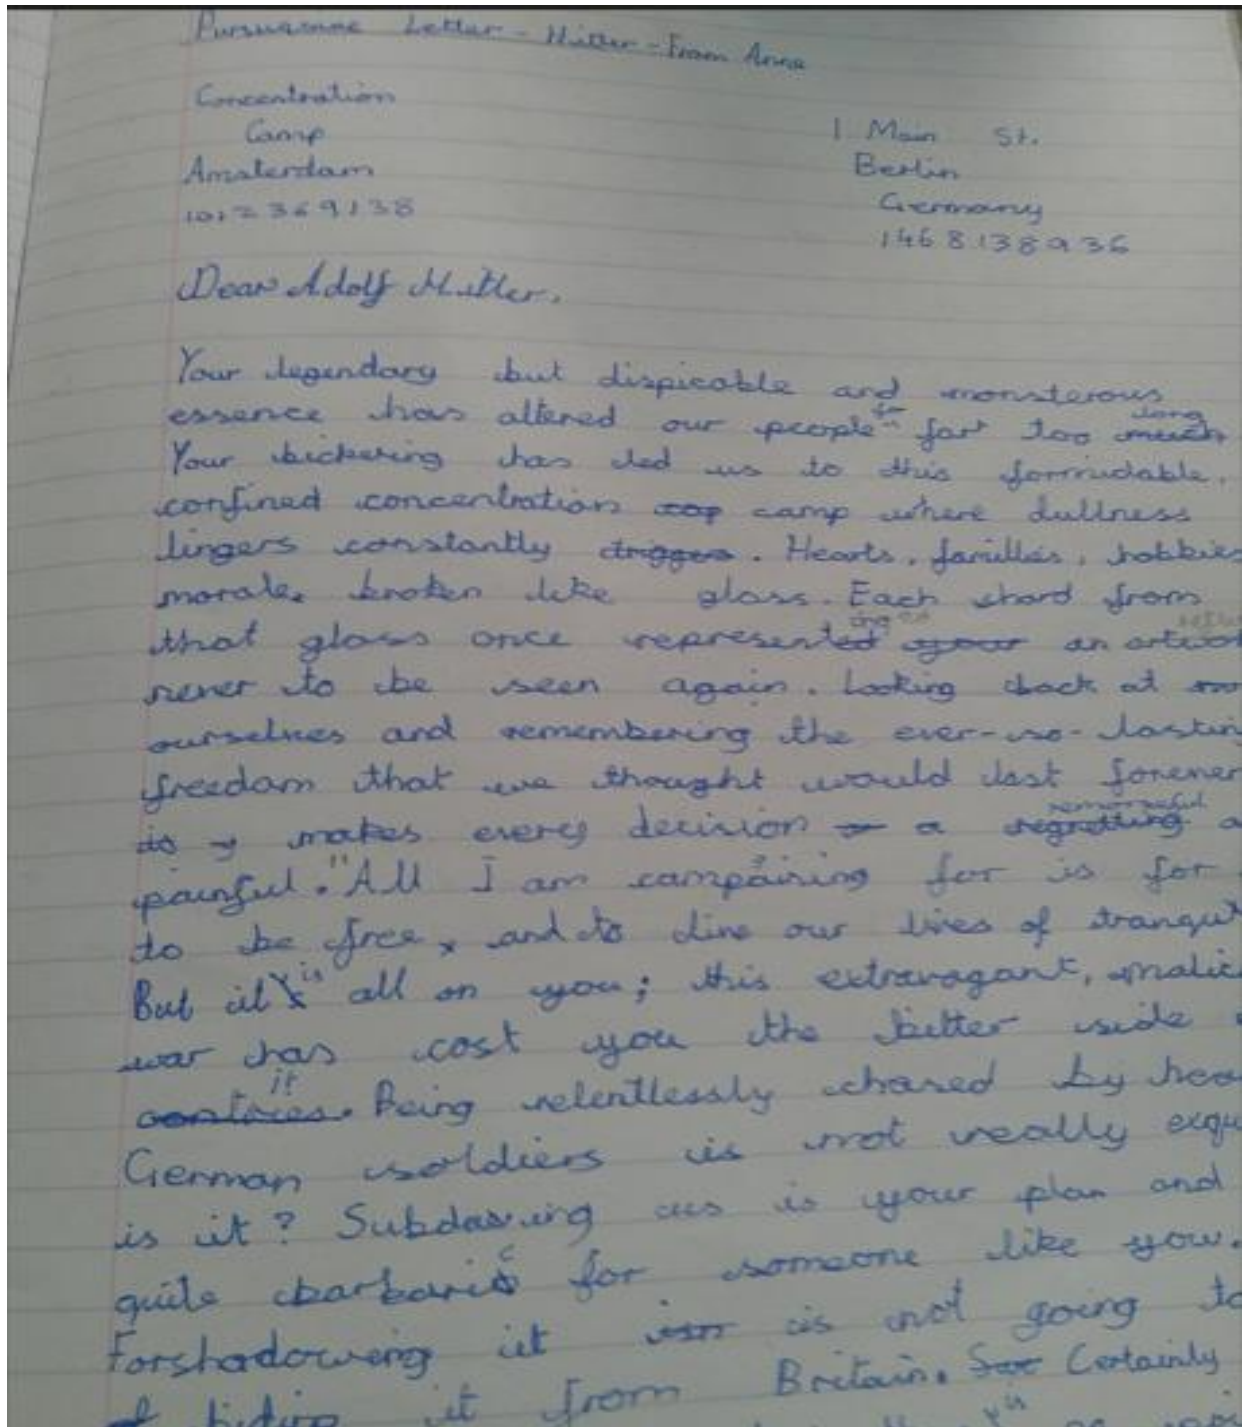 Pursuasive Letter - Hitler - From Anne
Concentration
Camp
Amsterdam
1012369138
1 Main St.
Berlin
Germany
1468138936
Dear Adolf Hitler,
Your legendary but dispicable and monsterous
essence has altered our people for far too long
Your bickering has led us to this formidable,
confined concentration camp where dullness
lingers constantly. Hearts, families, hobbies
morale, broken like glass. Each shard from
that glass once represented an
never to be seen again. Looking back at
ourselves and remembering the ever-so-lasting
freedom that we thought would last forever
makes every decision a remorseful
painful. "All I am campaining for is for
to be free, and to live our lives of
But it is all on you; this extravagant,
war has cost you the bitter side
it. Being relentlessly chased by
German soldiers is not really
is it? Subdawing us is your plan and
quite barbaric for someone like you.
Forshadowing it is not going to
it from Britain. Certainly